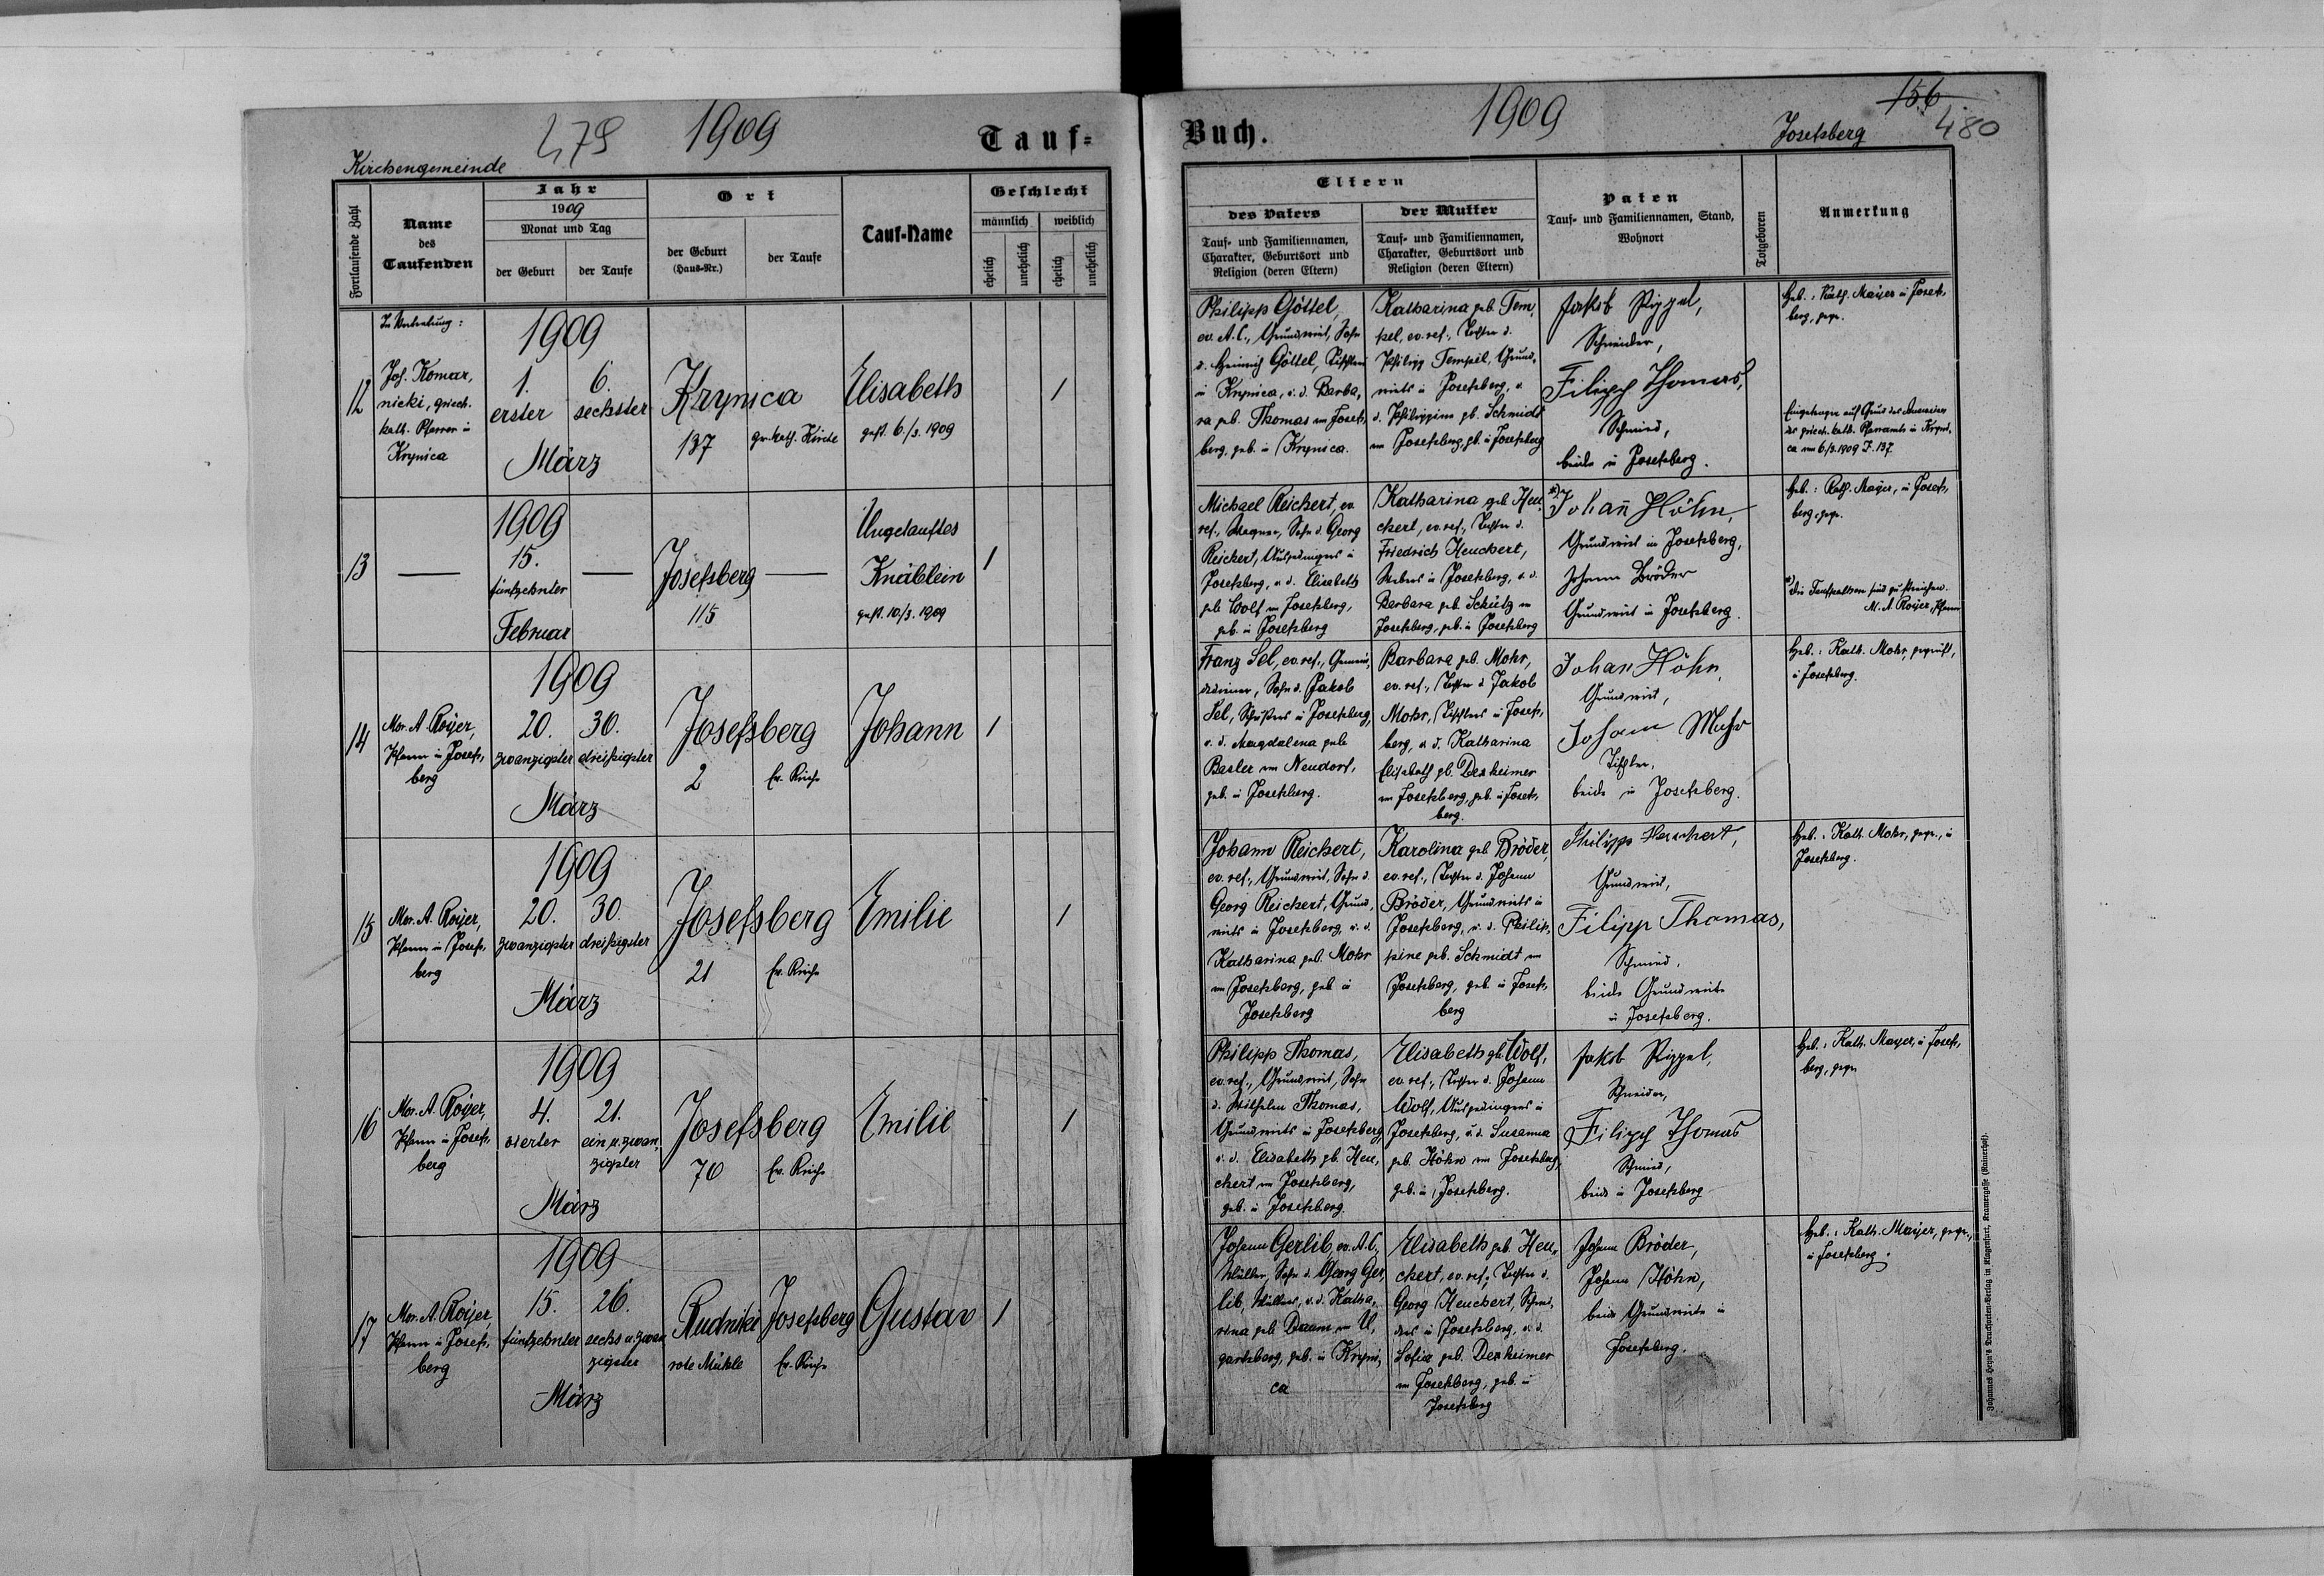 479 1909
Tauf-
Kirchengemeinde
Fortlaufende Zahl
Name
des
Taufenden
Jahr
1909
Monat und Tag
der Geburt
der Taufe
Ort
der Geburt
(Haus-Nr.)
der Taufe
Tauf-Name
Geschlecht
männlich
weiblich
ehelich
unehelich
ehelich
unehelich
12
In Vertretung:
Joh. Komar,
nicki, griech.
kath. Pfarrer in
Krynica
1909
1. 6.
erster sechster
März
Krynica
137 gr. kath. Kirche
Elisabeth
gest. 6./3. 1909
1
13
1909
15.
fünfzehnter
Februar
Josefsberg
115
Ungetauftes
Knäblein
gest. 10./3. 1909
1
14
Mor. A. Royer,
Pfarrer in Josefs,
berg
1909
20. 30.
zwanzigster dreißigster
März
Josefsberg
2 Ev. Kirche
Johann
1
15
Mor. A. Royer,
Pfarrer in Josefs,
berg
1909
20. 30.
zwanzigster dreißigster
März
Josefsberg
21 Ev. Kirche
Emilie
1
16
Mor. A. Royer,
Pfarrer in Josefs,
berg
1909
4. 21.
vierter ein u. zwan,
zigster
März
Josefsberg
70 Ev. Kirche
Emilie
1
17
Mor. A. Royer,
Pfarrer in Josefs,
berg
1909
15. 26.
fünfzehnter sechs u. zwan
zigster
März
Rudniki Josefsberg
rote Mühle Ev. Kirche
Gustav
1
Buch.
1909
156
Josefsberg 480
Eltern
des Vaters
Tauf- und Familiennamen,
Charakter, Geburtsort und
Religion (deren Eltern)
der Mutter
Tauf- und Familiennamen,
Charakter, Geburtsort und
Religion (deren Eltern)
Paten
Tauf- und Familiennamen, Stand,
Wohnort
Totgeboren
Anmerkung
Philipp Göttel,
ev. A. C., Grundwirt, Sohn
d. Heinrich Göttel, Tischlers
in Krynica, u. d. Barba,
ra geb. Thomas von Josefs,
berg, geb. in Krynica.
Katharina geb. Tem,
pel, ev. ref., Tochter d.
Philipp Tempel, Grund,
wirts in Josefsberg, u.
d. Philippine gb. Schmidt
von Josefsberg, gb. in Josefsberg
Jakob Rippel,
Schneider,
Filipp Thomas,
Schmied,
beide in Josefsberg.
Heb.: Kath. Mayer in Josefs,
berg, gepr.
Eingetragen auf Grund des
des griech. kath. Pfarramts in Kryni,
ca vom 6/3. 1909 Z. 137
Michael Reichert, ev.
ref., Wagner, Sohn d. Georg
Reichert, Ausgedingers in
Josefsberg, u. d. Elisabeth
geb. Wolf von Josefsberg,
geb. in Josefsberg
Katharina geb. Heu,
chert, ev. ref., Tochter d.
Friedrich Heuchert,
Webers in Josefsberg, u. d.
Barbara geb. Schütz von
Josefsberg, geb. in Josefsberg
*) Johann Höhn,
Grundwirt in Josefsberg,
Johann Bröder
Grundwirt in Josefsberg.
Heb.: Kath. Mayer, in Josefs,
berg, gepr.
*) Die Taufpathen sind zu streichen.
M. A. Royer, Pfarrer
Franz Sel, ev. ref., Gemein,
dediener, Sohn d. Jakob
Sel, Schusters in Josefsberg,
u. d. Magdalena geb.
Basler von Neudorf,
geb. in Josefsberg.
Barbara geb. Mohr,
ev. ref., Tochter d. Jakob
Mohr, Tischlers in Josefs,
berg, u. d. Katharina
Elisabeth gb. Desheimer
von Josefsberg, geb. in Josefs,
berg.
Johan Höhn,
Grundwirt,
Johann Mohr
Tischler,
beide in Josefsberg.
Heb.: Kath. Mohr, geprüft,
in Josefsberg.
Johann Reichert,
ev. ref., Grundwirt, Sohn d.
Georg Reichert, Grund,
wirts in Josefsberg, u. d.
Katharina geb. Mohr
von Josefsberg, geb. in
Josefsberg
Karolina geb. Bröder,
ev. ref., Tochter d. Johann
Bröder, Grundwirts in
Josefsberg, u. d. Philip,
pine geb. Schmidt von
Josefsberg, geb. in Josefs,
berg
Philipp Heuchert,
Grundwirt,
Filipp Thomas,
Schmied,
beide Grundwirte
in Josefsberg.
Heb.: Kath. Mohr, gepr., in
Josefsberg.
Philipp Thomas,
ev. ref., Grundwirt, Sohn
d. Wilhelm Thomas,
Grundwirts in Josefsberg,
u. d. Elisabeth gb. Heu,
chert von Josefsberg,
geb. in Josefsberg.
Elisabeth gb. Wolf,
ev. ref., Tochter d. Johann
Wolf, Ausgedingers in
Josefsberg, u. d. Susanna
geb. Höhn von Josefsberg,
geb. in Josefsberg.
Jakob Rippel,
Schneider,
Filipp Thomas
Schmied,
beide in Josefsberg
Heb.: Kath. Mayer, in Josefs,
berg, gepr.
Johann Gerlib, ev. A. C.,
Müller, Sohn d. Georg Ger,
lib, Müllers, u. d. Katha,
rina geb. Daum von U,
gartsberg, geb. in Kryni,
ca
Elisabeth geb. Heu,
chert, ev. ref., Tochter d.
Georg Heuchert, Schnei,
ders in Josefsberg, u. d.
Sofia geb. Desheimer
von Josefsberg, geb. in
Josefsberg
Johann Bröder,
Johann Höhn,
beide Grundwirte in
Josefsberg.
Heb.: Kath. Mayer, gepr.,
in Josefsberg.
Johannes Heyn's Drucksorten-Verlag in Klagenfurt, Kramergasse (Rainerhof).